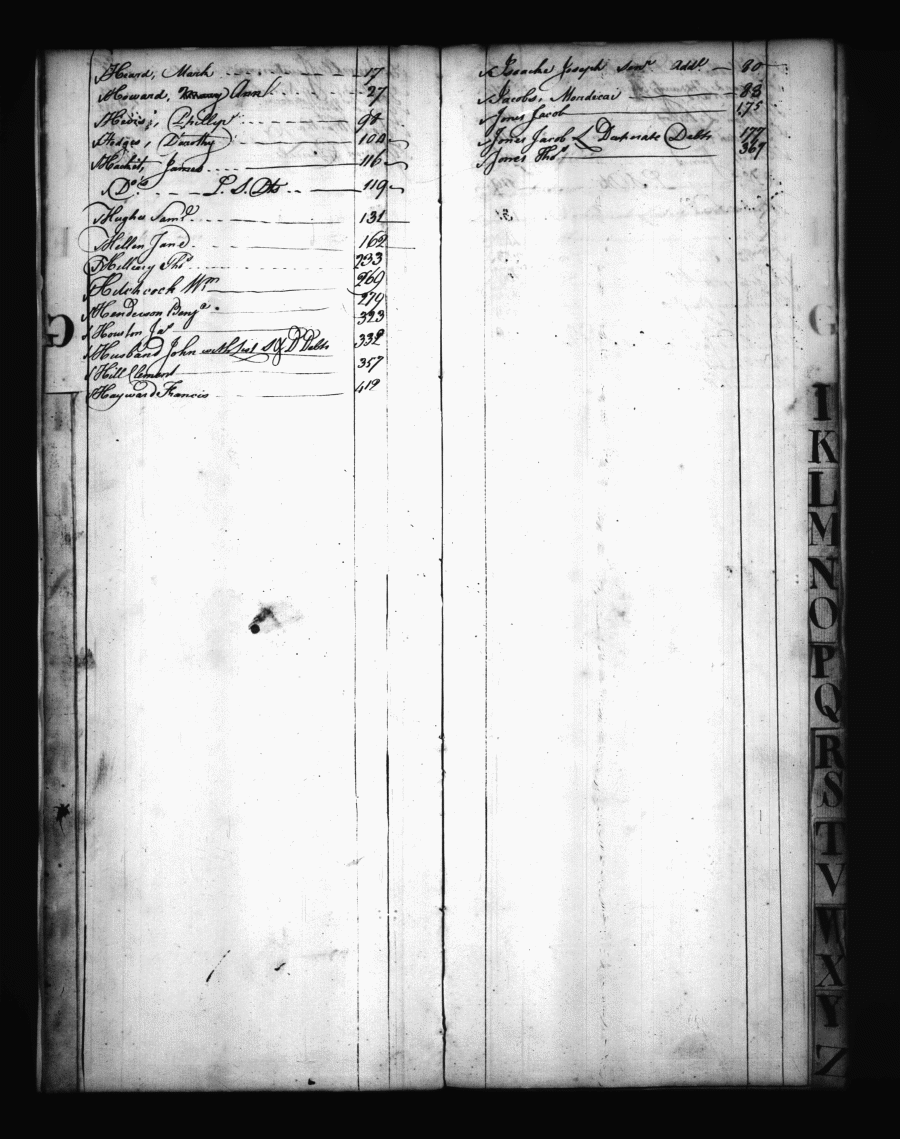 Heard, Mark 17
Howard, Ann 27
Hevis, Phillip 90
Hedges, Dorothy 104
Hackit, James 116
Do P. S. Ots 119
Hughes Saml 131
Hellen Jane 162
Hellery Thos 233
Hitchcock Wm 269
Henderson Benja 279
Houston Jas 323
Husband John with list Debts 332
Hill Clement 357
Hayward Francis 419
Isaacke Joseph Senr Addl 80
Jacobs, Mordecai 83
Jones Jacob 175
Jones Jacob Desperate Debts 177
Jones Thos 369
G
G
I
K
L
M
N
O
P
Q
R
S
T
V
W
X
Y
Z